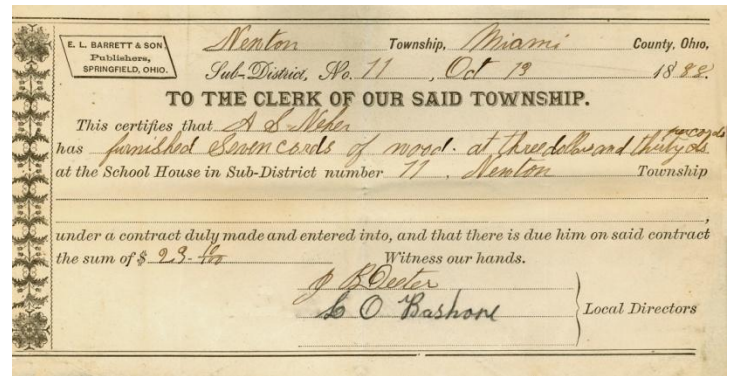 E. L. BARRETT & SON
Publishers,
SPRINGFIELD, OHIO.
Newton Township, Miami County, Ohio,
Sub-District, No. 11, Oct 13 1888.
TO THE CLERK OF OUR SAID TOWNSHIP.
This certifies that A S Neher
per cord
has furnished Seven cords of wood. at three dollars and thirty cts
at the School House in Sub-District number 11, Newton Township
under a contract duly made and entered into, and that there is due him on said contract
the sum of $ 23- Witness our hands.
J B Deeter
L O Bashore
Local Directors